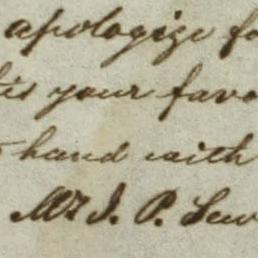 apologize fo
is your favo
hand with
Mr J. P. Law